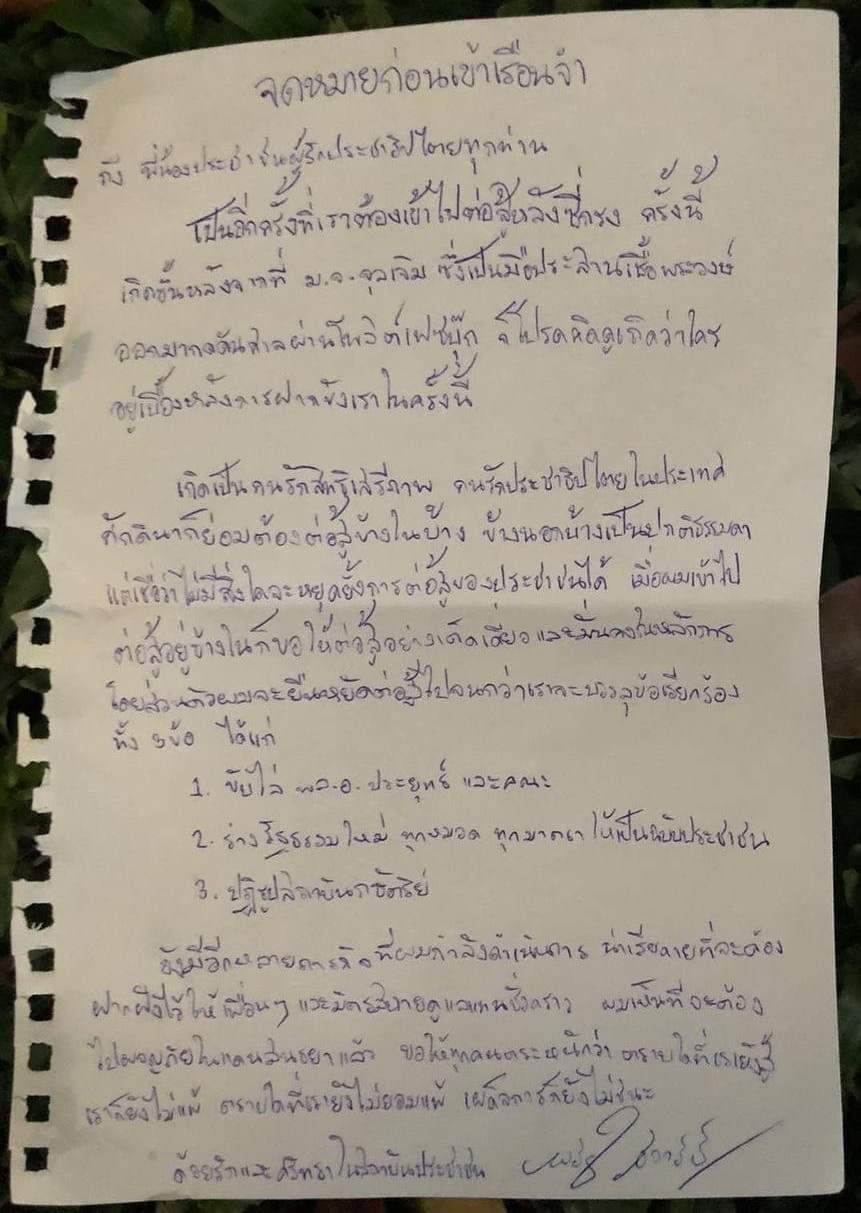 จดหมายก่อนเข้าเรือนจำ
ถึง พี่น้องประชาชนผู้รักประชาธิปไตยทุกท่าน
เป็นอีกครั้งที่เราต้องเข้าไปต่อสู้หลังซี่กรง ครั้งนี้
เกิดขึ้นหลังจากที่ ม.จ.จุลเจิม ซึ่งเป็นมือประสานเชื้อพระวงษ์
ออกมากดดันศาลผ่านโพสต์เฟซบุ๊ก ก็โปรดคิดดูเถิดว่าใคร
อยู่เบื้องหลังการฝากขังเราในครั้งนี้
เกิดเป็นคนรักสิทธิเสรีภาพ คนรักประชาธิปไตยในประเทศ
ศักดินาก็ย่อมต้องต่อสู้ข้างในบ้าง ข้างนอกบ้างเป็นปกติธรรมดา
แต่เชื่อว่าไม่มีสิ่งใดจะหยุดยั้งการต่อสู้ของประชาชนได้ เมื่อผมเข้าไป
ต่อสู้อยู่ข้างในก็ขอให้ต่อสู้อย่างเด็ดเดี่ยวและมั่นคงในหลักการ
โดยส่วนตัวผมจะยืนหยัดต่อสู้ไปจนกว่าเราจะบรรลุข้อเรียกร้อง
ทั้ง 3 ข้อ ได้แก่
1. ขับไล่ พล.อ. ประยุทธ์ และคณะ
2. ร่างรัฐธรรมใหม่ ทุกหมวด ทุกมาตรา ให้เป็นฉบับประชาชน
3. ปฏิรูปสถาบันกษัตริย์
ยังมีอีกหลายภารกิจที่ผมกำลังดำเนินการ น่าเสียดายที่จะต้อง
ฝากฝังไว้ให้เพื่อนๆ และมิตรสหายดูแลแทนชั่วคราว ผมเห็นทีจะต้อง
ไปผจญภัยในแดนสนธยาแล้ว ขอให้ทุกคนตระหนักว่า ตราบใดที่เรายังสู้
เราก็ยังไม่แพ้ ตราบใดที่เรายังไม่ยอมแพ้ เผด็จการก็ยังไม่ชนะ
ด้วยรักและศรัทธาในสถาบันประชาชน